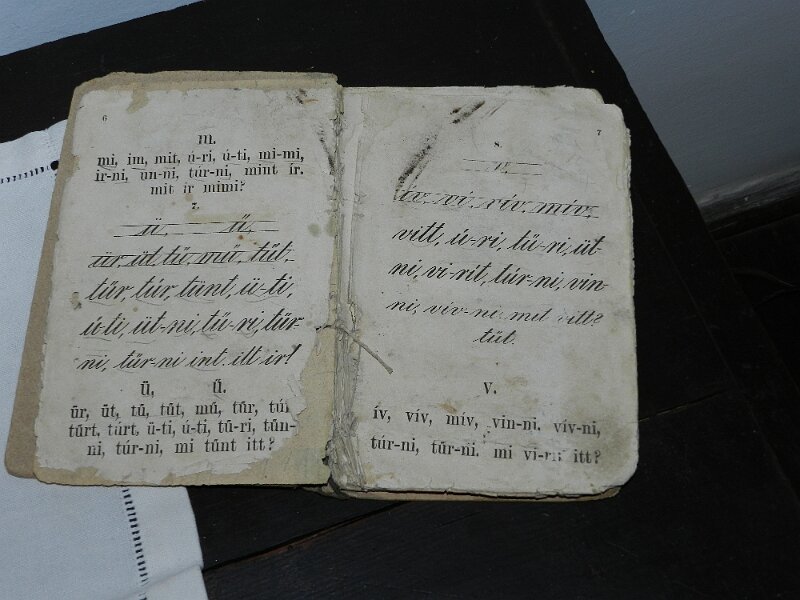 6
m.
mi, im, mit, ú-ri, ú-ti, mi-mi,
ir-ni, un-ni, túr-ni, mint ír.
mit ir mimi?
7.
ü, ű,
ür, üt, tű, mű, tűt,
tűr, túr, tünt, ü-ti,
ú-ti, üt-ni, tű-ri, tűr-
ni, túr-ni int. itt ir!
Ü, Ű.
űr, űt, tű, tűt, mű, tűr,
tűrt, túrt, ü-ti, ú-ti, tű-ri, tűn-
ni, túr-ni, mi tűnt itt?
7
8.
v.
ív, ví, vív, mív,
vitt, ú-ri, tű-ri, üt-
ni, vi-rit, túr-ni, vin-
ni, vív-ni, mit vitt?
tűt.
V.
ív, vív, mív, vin-ni, vív-ni,
túr-ni, tűr-ni. mi itt?